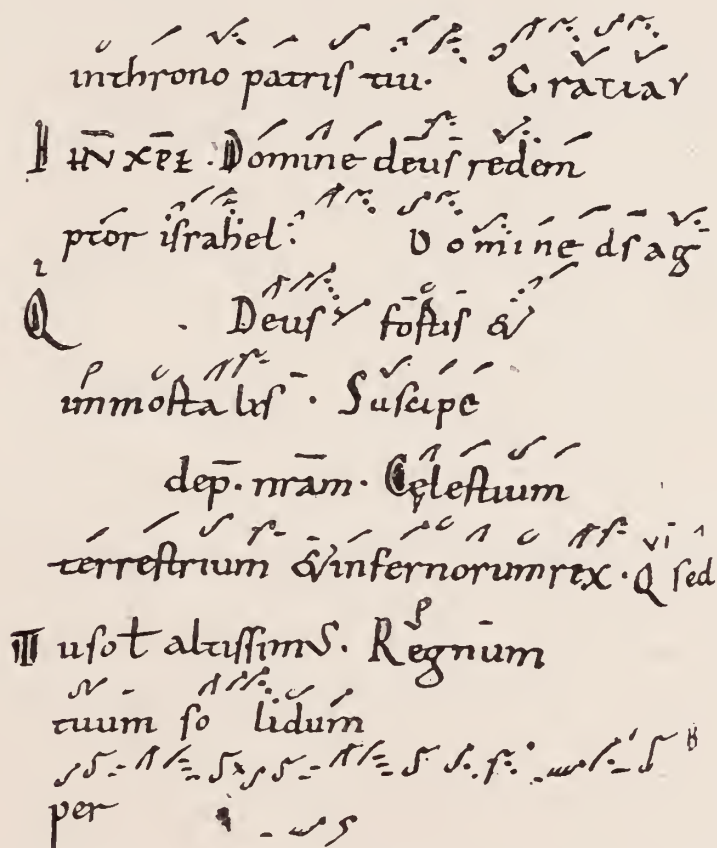 inthrono patris tui. Gratiar
IHV XPE. Domine deus redem
ptor israhel: Domine ds ag
Q Deus fortis &
immortalis. Suscipe
dep. nram. Celestium
terrestrium & infernorum rex. Q sed
Tu sol altissimus. Regnum
tuum solidum
per